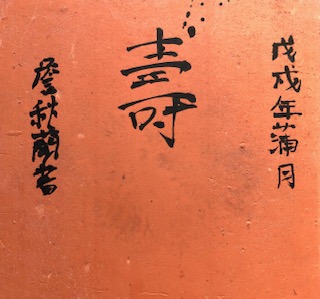 戊戌年蒲月
壽
詹秋蘭書